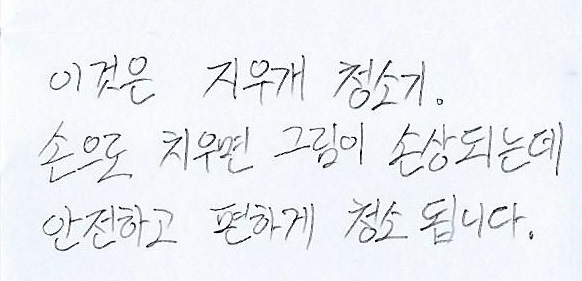 이것은 지우개 청소기.
손으로 치우면 그림이 손상되는데
안전하고 편하게 청소 됩니다.